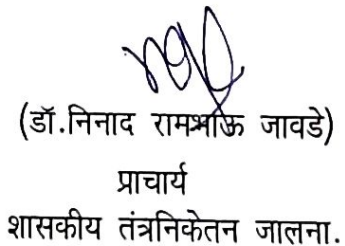 (डॉ.निनाद रामभक्ति जावडे)
प्राचार्य
शासकीय तंत्रनिकेतन जालना.